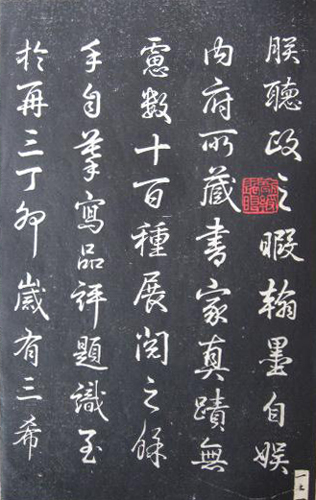 朕聽政之暇翰墨自娛
內府所藏書家真蹟無
慮數十百種展閱之餘
手自摹寫品評題識至
於再三丁卯歲有三希